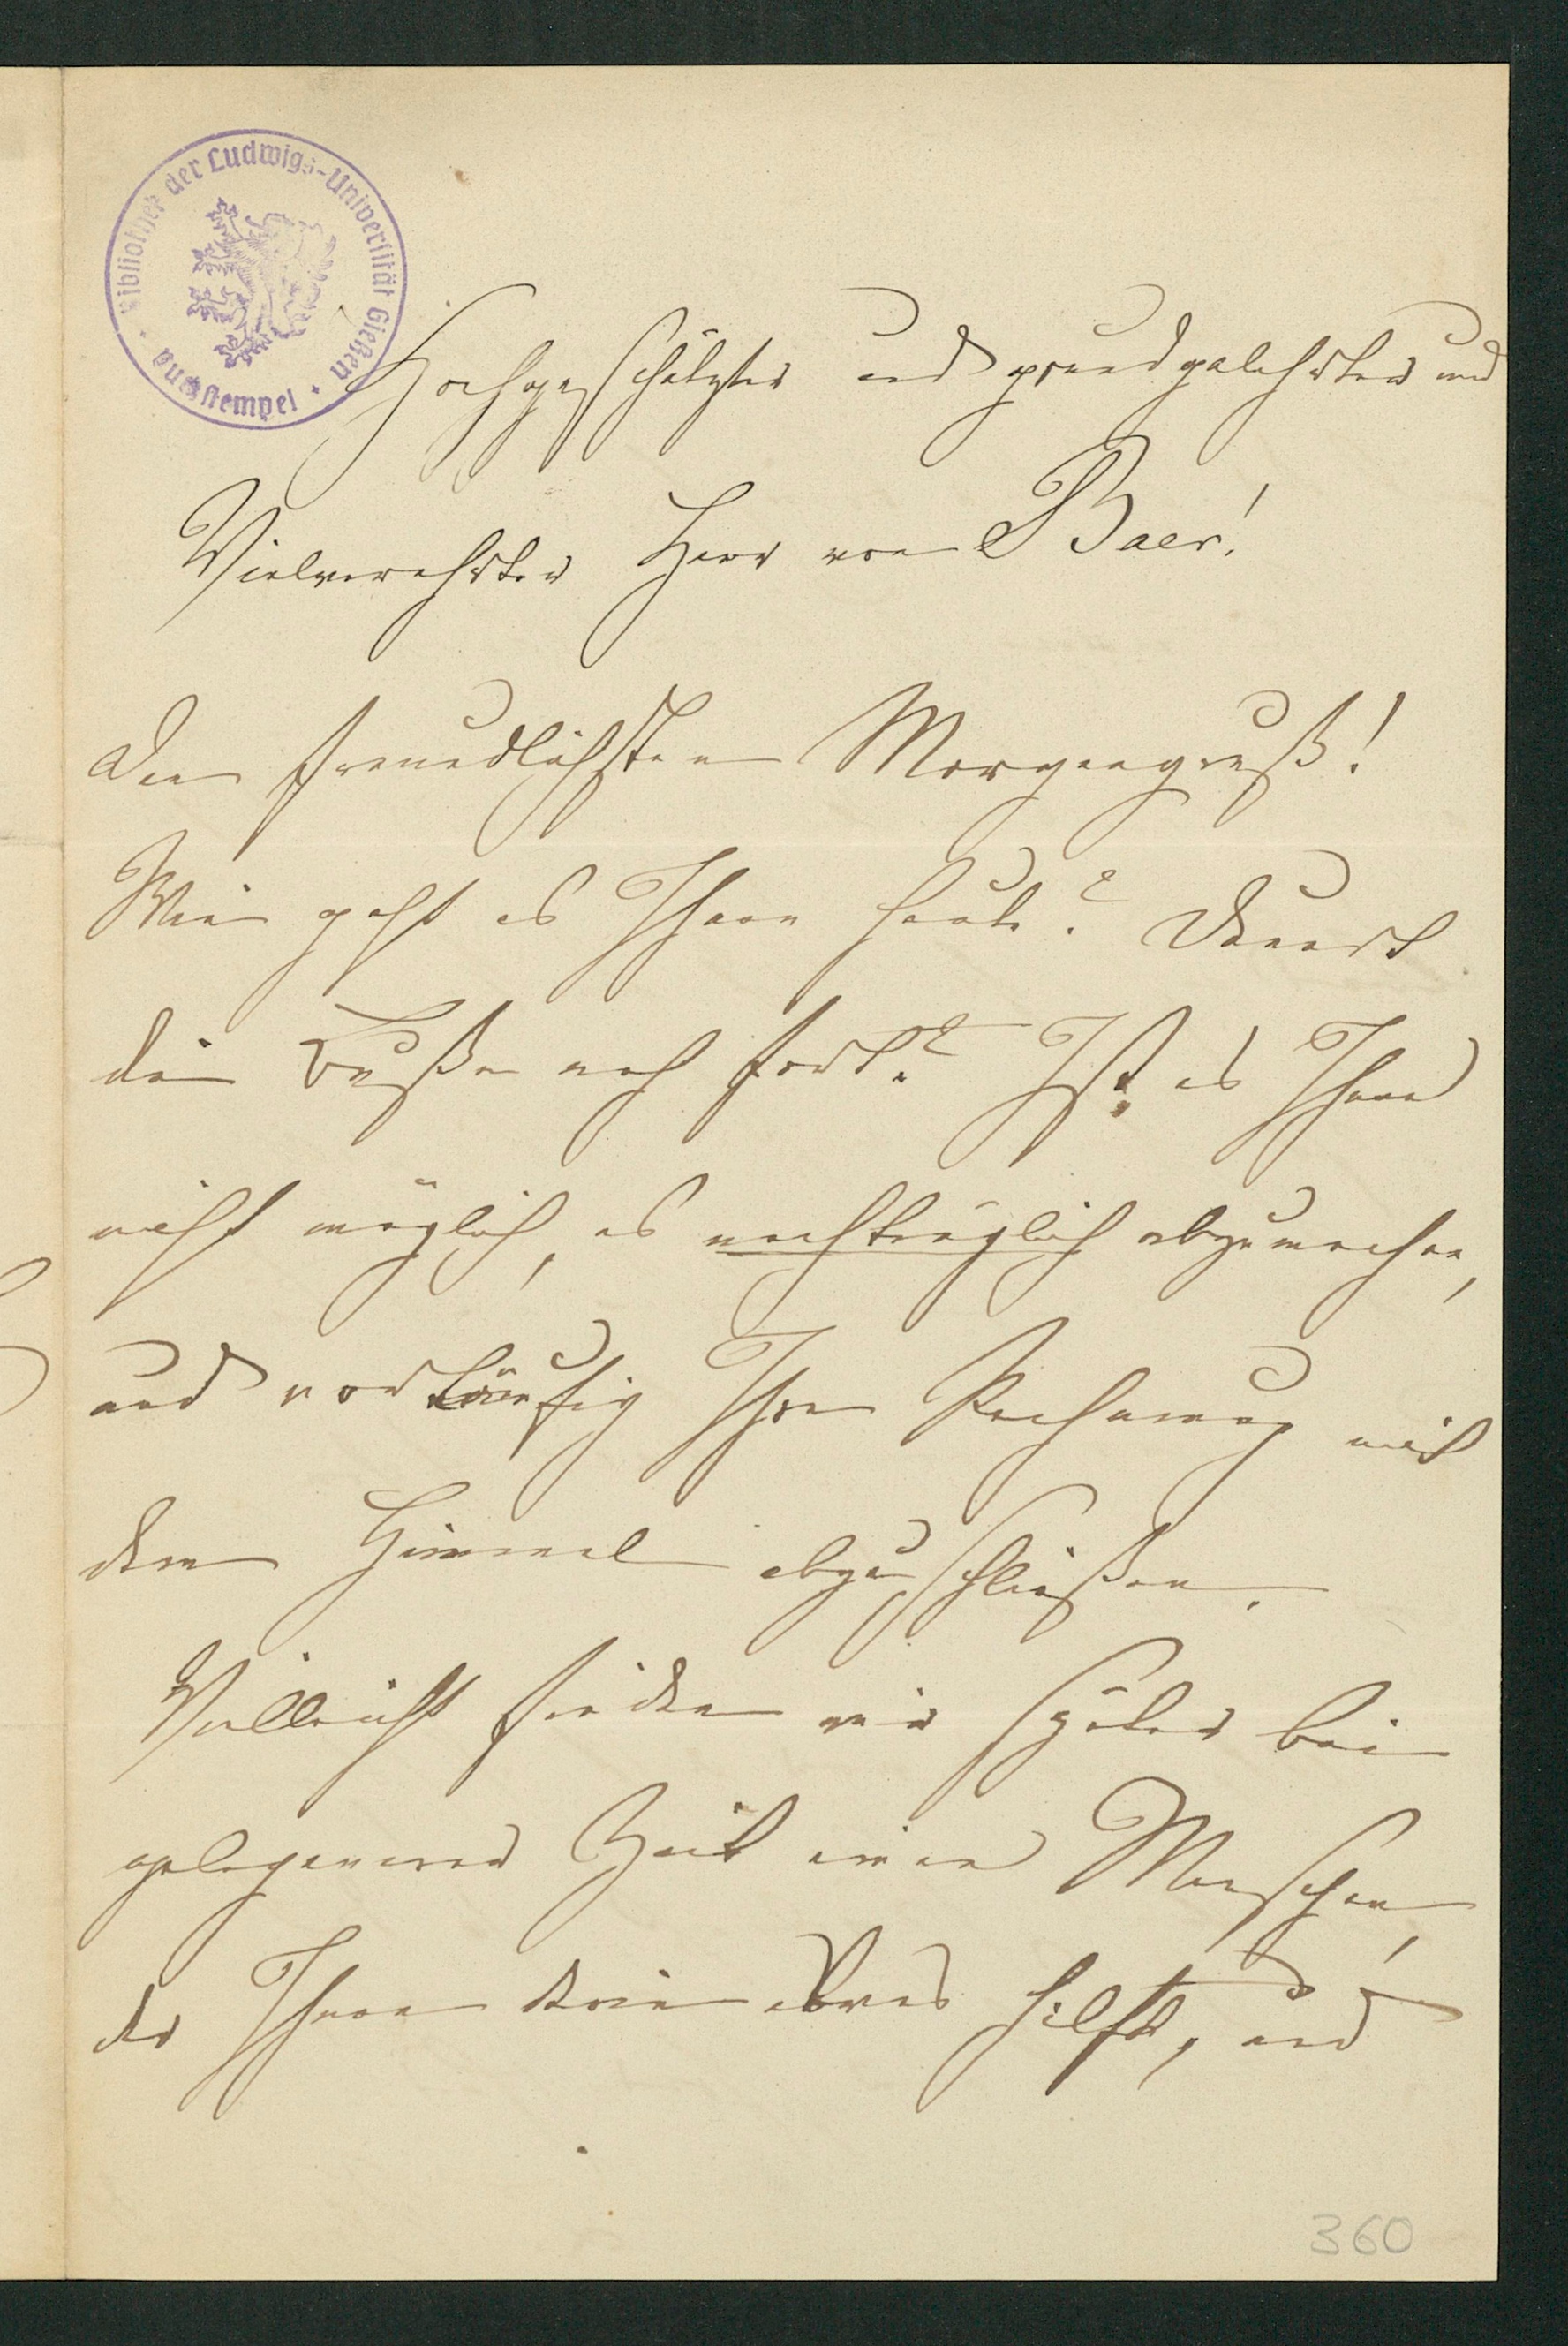 Bibliothek der Ludwigs-Universität Gießen
Buchstempel
Hochgeschätzter und grundgelehrter und
Vielverehrter Herr von Baer!
Den freundlichsten Morgengruß!
Wie geht es Ihnen heute? Dauert
die Buße noch fort? Ist es Ihnen
nicht möglich, es nachträglich abzumachen,
und vorläufig Ihre Rechnung mit
dem Himmel abzuschließen.
Vielleicht finden wir später bei
gelegenerer Zeit einen Menschen,
der Ihnen hilft, und
360